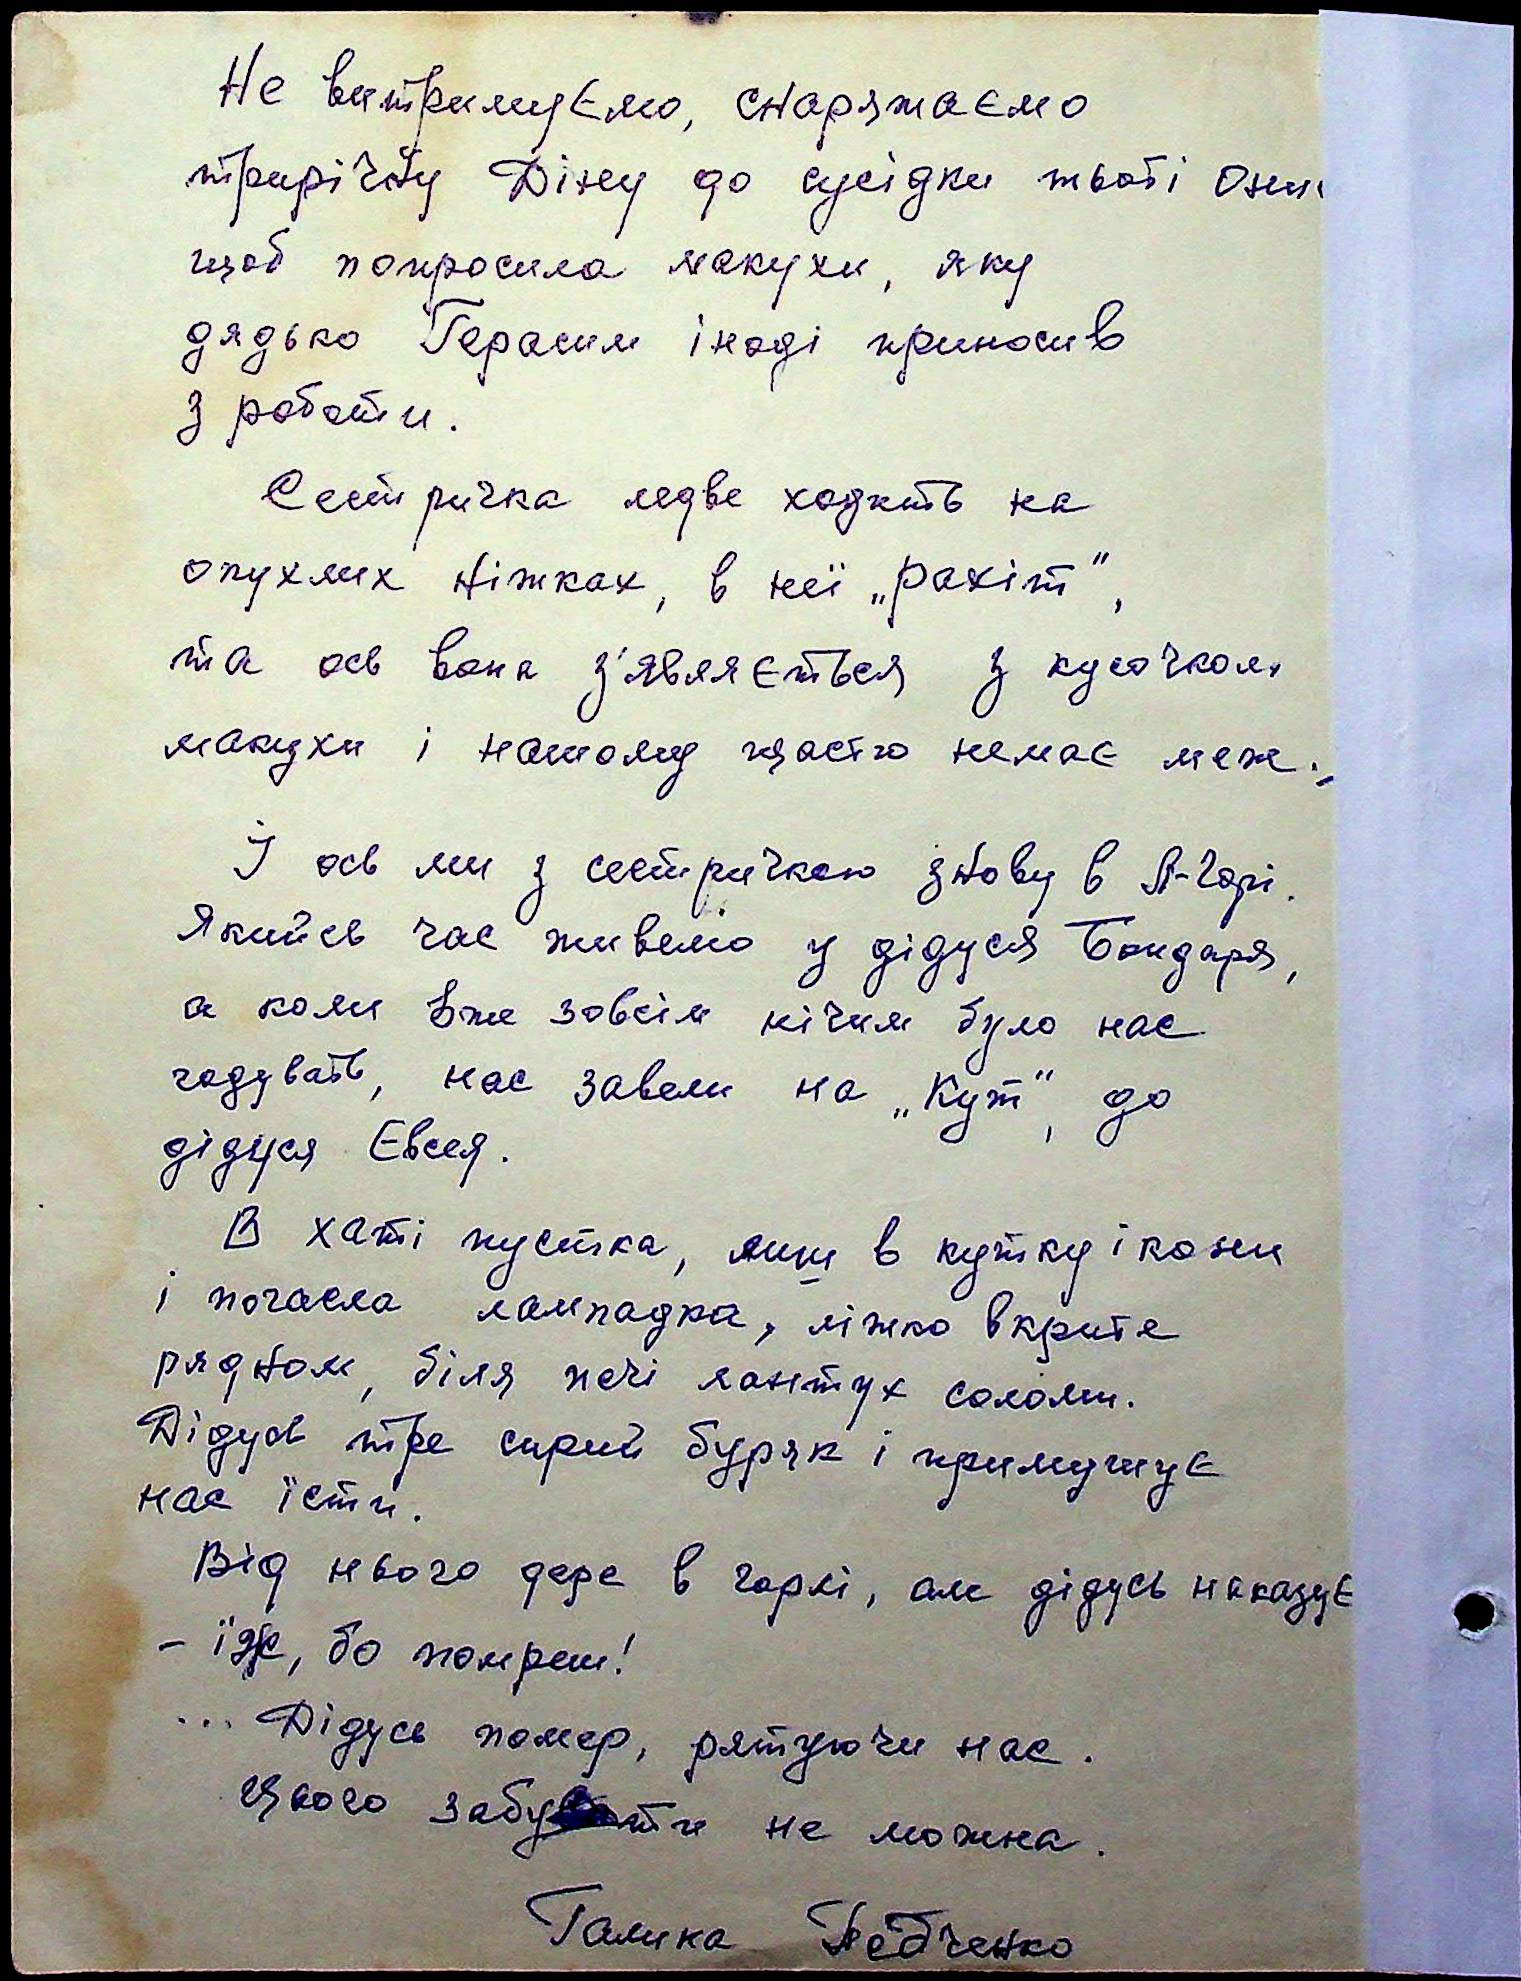 Не витримуємо, снаряжаємо
трирічну Діну до сусідки тьоті
щоб попросила макухи, яку
дядько Герасим іноді приносив
з роботи.
Сестричка ледве ходить на
опухлих ніжках, в неї „рахіт",
та ось вона з'являється з кусочком
макухи і нашому щастю немає меж.
І ось ми з сестричкою знову в Л-Горі.
Якийсь час живемо у дідуся Бондаря,
а коли вже зовсім нічим було нас
годувать, нас завели на „Кут", до
дідуся Євсея.
В хаті пустка, лиш в кутку ікони
і погасла лампадка, ліжко вкрите
рядном, біля печі лантух соломи.
Дідусь тре сирий буряк і примушує
нас їсти.
Від нього дере в горлі, але дідусь наказує
- їж, бо помреш!
... Дідусь помер, рятуючи нас.
Цього забути не можна.
Галина